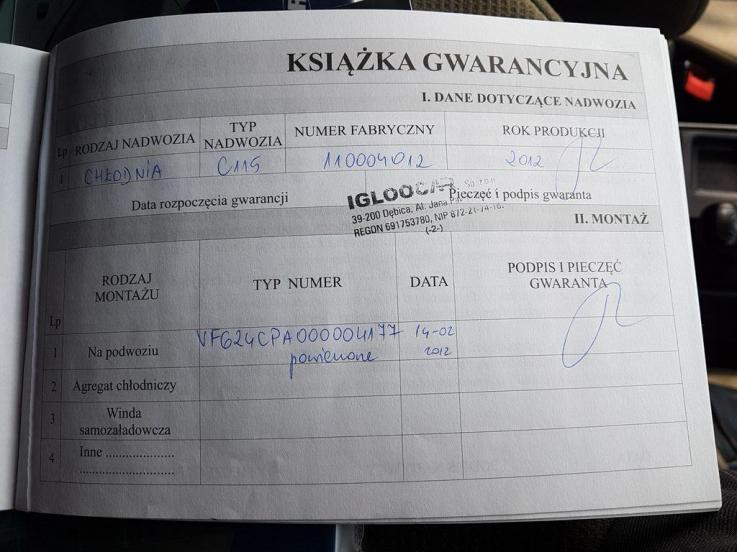 KSIĄŻKA GWARANCYJNA
I. DANE DOTYCZĄCE NADWOZIA
Lp RODZAJ NADWOZIA TYP NADWOZIA NUMER FABRYCZNY ROK PRODUKCJI
1 CHŁODNIA C115 110004012 2012
Data rozpoczęcia gwarancji Pieczęć i podpis gwaranta
IGLOOCAR
39-200 Dębica, Al. Jana
REGON 691753780, NIP 872-21-74-
(-2-)
II. MONTAŻ
Lp RODZAJ MONTAŻU TYP NUMER DATA PODPIS I PIECZĘĆ GWARANTA
1 Na podwoziu VF624CPA000004177 14-02
2012
2 Agregat chłodniczy
3 Winda samozaładowcza
4 Inne ....................
............................